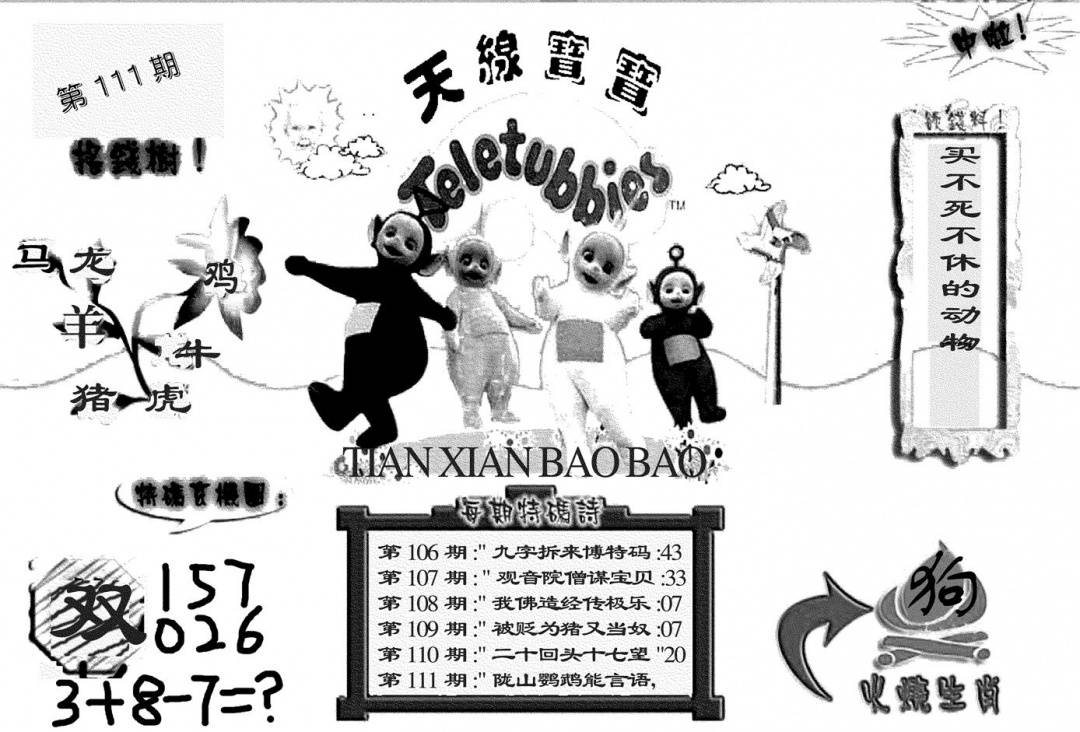 第 111 期
摇錢樹！
马 龙
鸡
羊
牛
猪 虎
天線寶寶
Teletubbies
TM
中啦！
买不死不休的动物
TIAN XIAN BAO BAO
特碼玄機圖：
双
157
026
3+8-7=?
每期特碼詩
第 106 期 :" 九字拆来博特码 :43
第 107 期 :" 观音院僧谋宝贝 :33
第 108 期 :" 我佛造经传极乐 :07
第 109 期 :" 被贬为猪又当奴 :07
第 110 期 :" 二十回头十七望 "20
第 111 期 :" 陇山鹦鹉能言语,
狗
火燒生肖